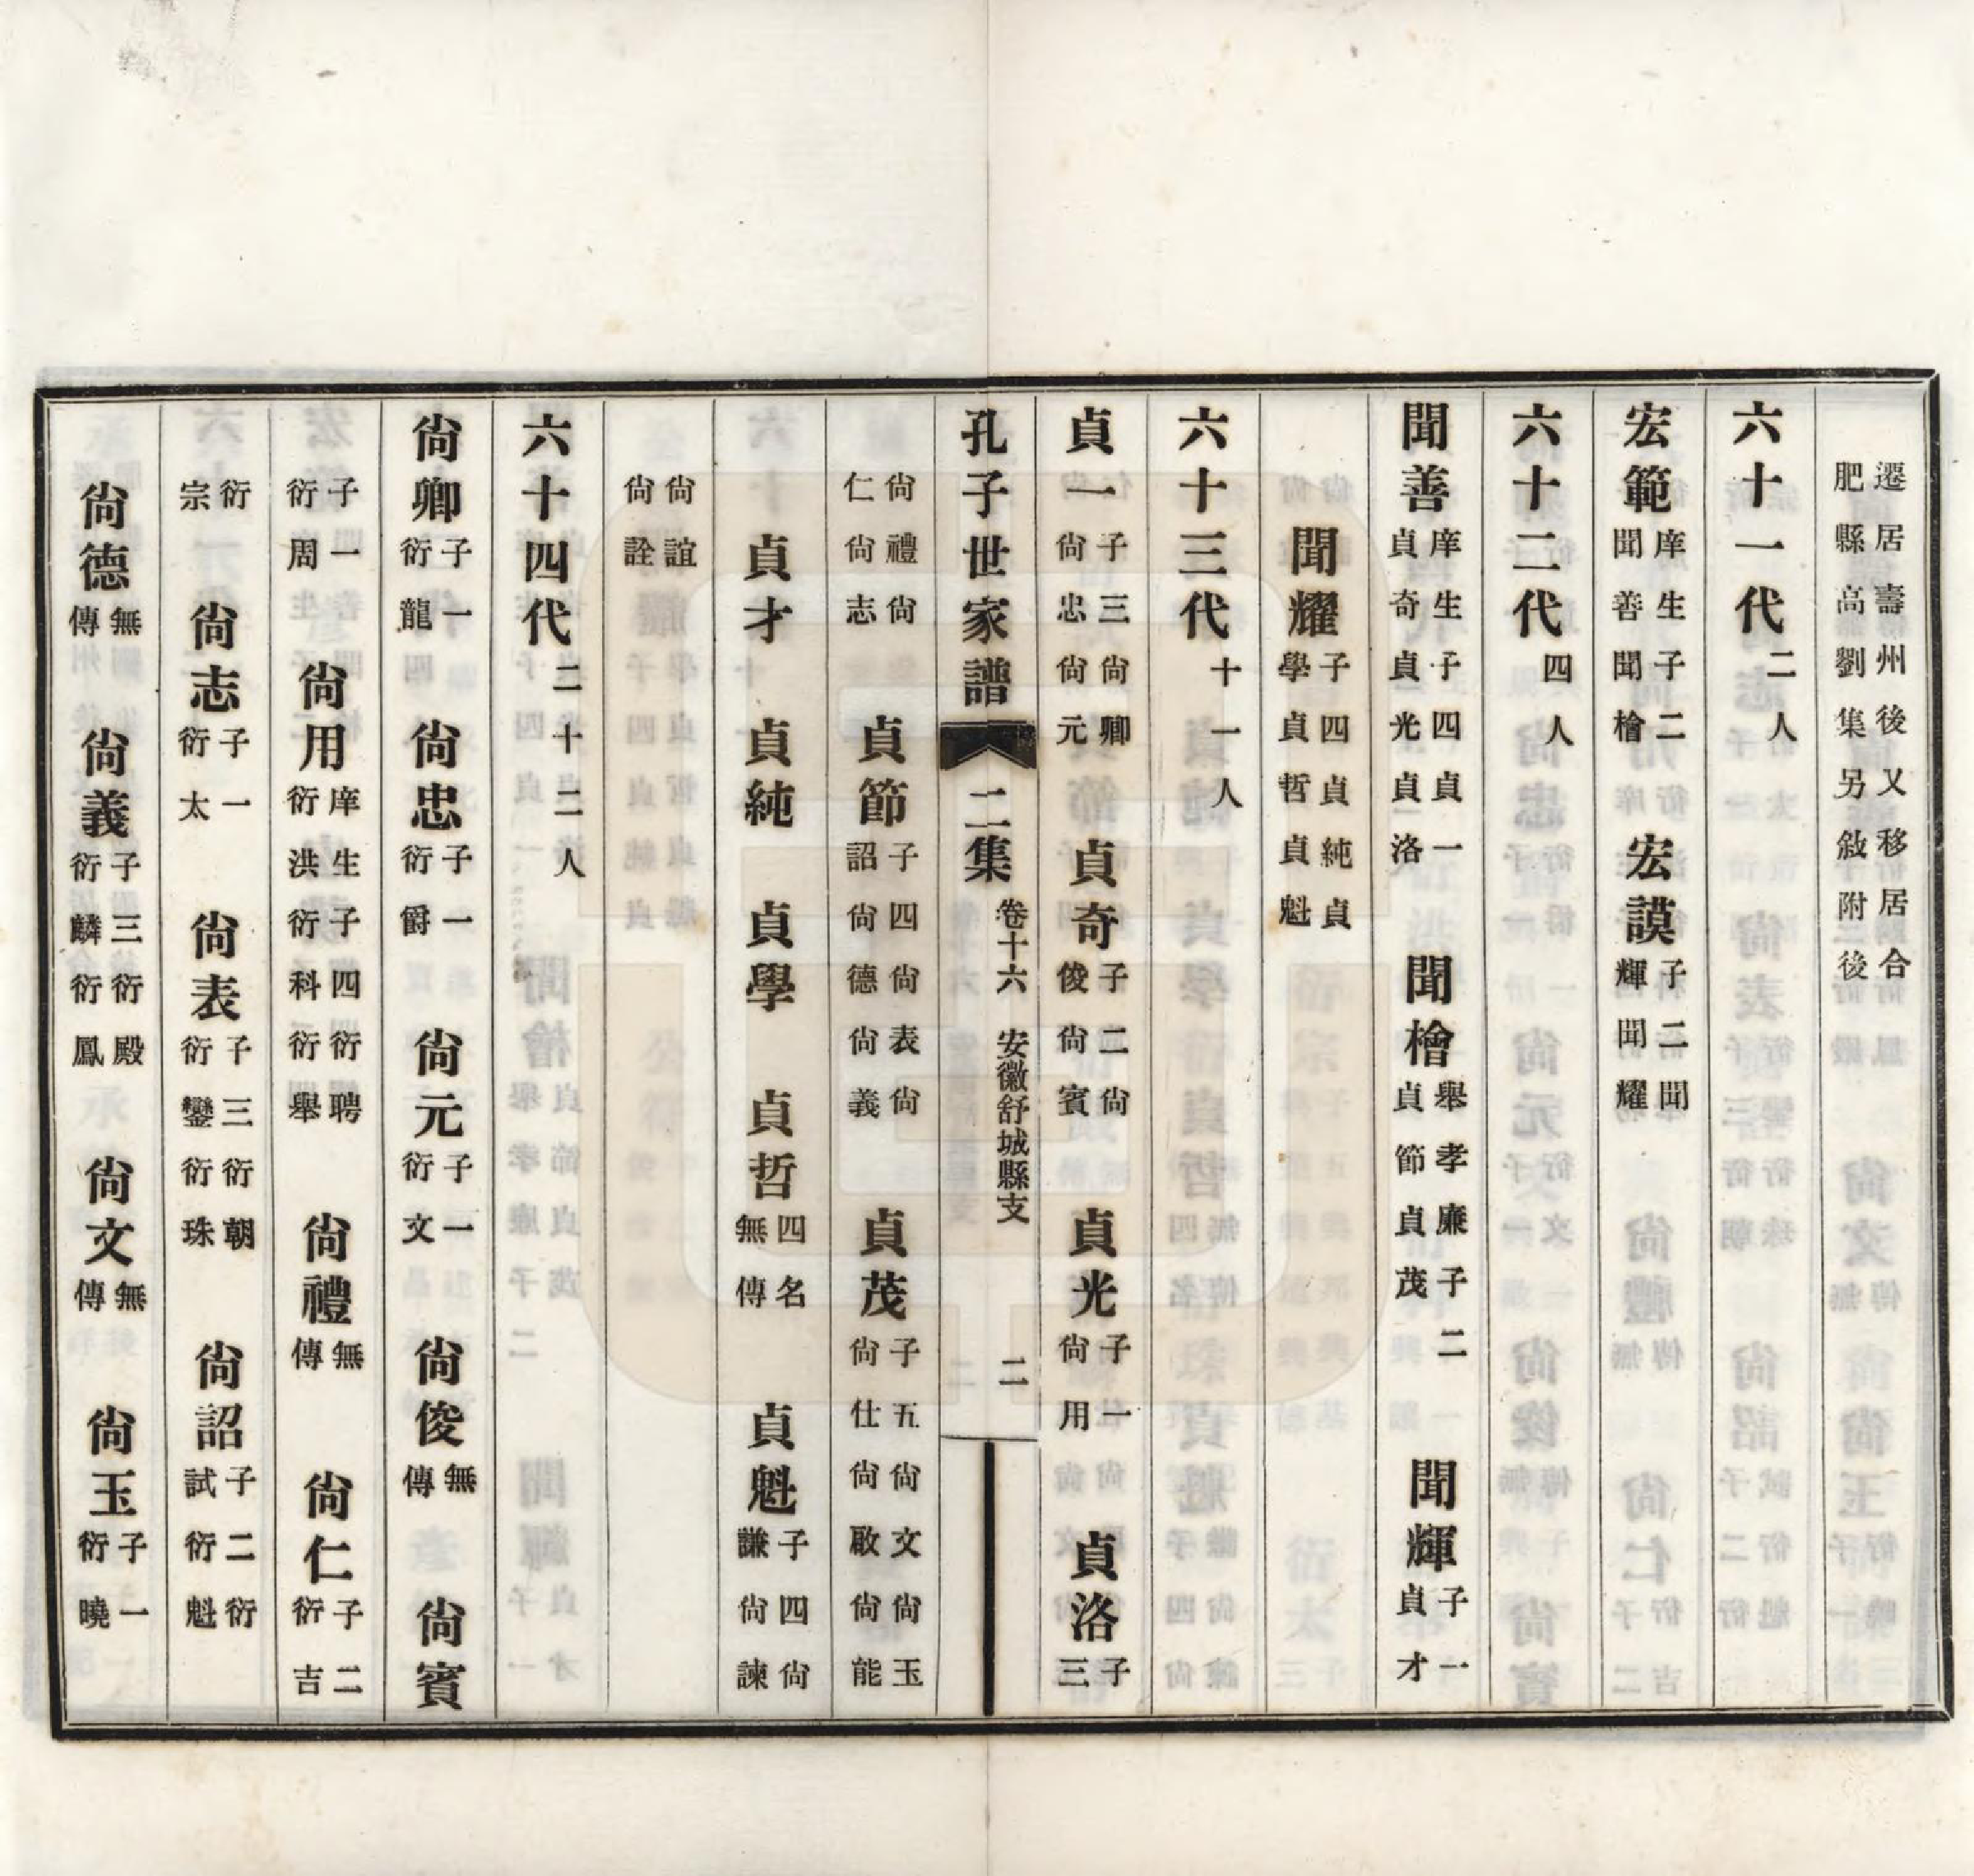 遷居壽州後又移居合
肥縣高劉集另敍附後
六十一代二人
宏範庠生子二聞善聞檜 宏謨子二聞輝聞耀
六十二代四人
聞善庠生子四貞一貞奇貞光貞洛 聞檜舉孝廉子二貞節貞茂 聞輝子一貞才
聞耀子四貞純貞學貞哲貞魁
六十三代十一人
貞一子三尙卿尙忠尙元 貞奇子二尙俊尙賓 貞光子一尙用 貞洛子三
孔子世家譜 二集 卷十六 安徽舒城縣支 二
尙禮尙仁尙志 貞節子四尙表尙詔尙德尙義 貞茂子五尙文尙玉尙仕尙啟尙能
貞才 貞純 貞學 貞哲四名無傳 貞魁子四尙謙尙諫
尙誼尙詮
六十四代二十二人
尙卿子一衍龍 尙忠子一衍爵 尙元子一衍文 尙俊無傳 尙賓
子一衍周 尙用庠生子四衍聘衍洪衍科衍舉 尙禮無傳 尙仁子二衍吉
衍宗 尙志子一衍太 尙表子三衍朝衍鑾衍珠 尙詔子二衍試衍魁
尙德無傳 尙義子三衍殿衍麟衍鳳 尙文無傳 尙玉子一衍曉